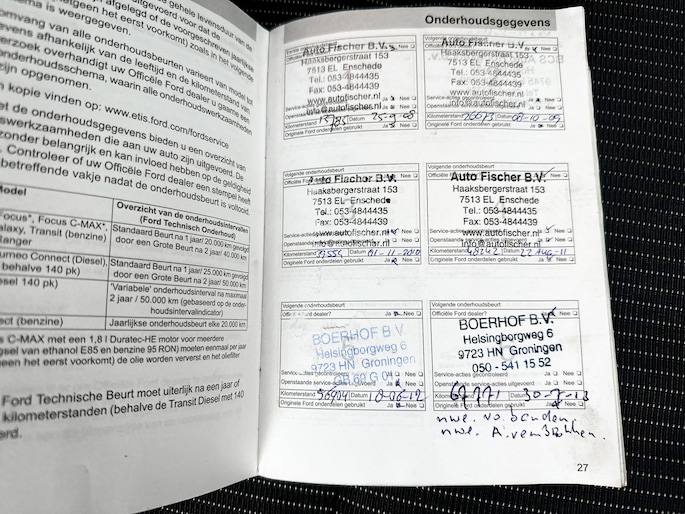 gehele levensduur van de
uitgevoerd voor dat de
afgelegd of de voorgeschreven jaarlijkse
(hetgeen het eerst voorkomt) zoals in het volgende
is weergegeven.
omvang van alle onderhoudsbeurten varieert van model
evens afhankelijk van de leeftijd en de kilometerstand van
erzoek overhandigt uw Officiële Ford dealer u gaarne een
onderhoudsschema, waarin alle onderhoudswerkzaamheden
zijn opgenomen.
kopie vinden op: www.etis.ford.com/fordservice
de onderhoudsgegevens bieden u een overzicht van
swerkzaamheden die aan uw auto zijn uitgevoerd. De
zonder belangrijk en kan invloed hebben op de geldigheid
. Controleer of uw Officiële Ford dealer een stempel heeft
betreffende vakje nadat de onderhoudsbeurt is voltooid.
Model
Overzicht van de onderhoudsintervallen
(Ford Technisch Onderhoud)
Focus*, Focus C-MAX*,
alaxy, Transit (benzine)
Ranger
Standaard Beurt na 1 jaar/ 20.000 km gevolgd
door een Grote Beurt na 2 jaar/ 40.000 km
urneo Connect (Diesel),
behalve 140 pk)
Standaard Beurt na 1 jaar/ 25.000 km gevolgd
door een Grote Beurt na 2 jaar/ 50.000 km
esel 140 pk)
'Variabele' onderhoudsinterval na maximaal
2 jaar / 50.000 km (gebaseerd op de onder-
houdsintervalindicator)
ect (benzine)
Jaarlijkse onderhoudsbeurt elke 20.000 km
s C-MAX met een 1,8 l Duratec-HE motor voor meerdere
gsel van ethanol E85 en benzine 95 RON) moeten eenmaal per jaar
een het eerst voorkomt) de olie worden ververst en het oliefilter
Ford Technische Beurt moet uiterlijk na een jaar of
kilometerstanden (behalve de Transit Diesel met 140
erd.
Onderhoudsgegevens
Auto Fischer B.V.
Haaksbergerstraat 153
7513 EL Enschede
Tel.: 053-4844435
Fax: 053-4844439
www.autofischer.nl
info@autofischer.nl
Kilometerstand 15785 Datum 25-9-08
Originele Ford onderdelen gebruikt Ja Nee
Volgende onderhoudsbeurt
Auto Fischer B.V.
Haaksbergerstraat 153
7513 EL Enschede
Tel.: 053-4844435
Fax: 053-4844439
www.autofischer.nl
info@autofischer.nl
Kilometerstand Datum 08-10-09
Originele Ford onderdelen gebruikt Ja Nee
Volgende onderhoudsbeurt
Auto Fischer B.V.
Haaksbergerstraat 153
7513 EL Enschede
Tel.: 053-4844435
Fax: 053-4844439
www.autofischer.nl
info@autofischer.nl
Kilometerstand Datum 01-11-2010
Originele Ford onderdelen gebruikt Ja Nee
Volgende onderhoudsbeurt
Officiële Auto Fischer B.V. Nee
Haaksbergerstraat 153
7513 EL Enschede
Tel.: 053-4844435
Fax: 053-4844439
www.autofischer.nl
info@autofischer.nl
Kilometerstand 48242 Datum 22 Aug-11
Originele Ford onderdelen gebruikt Ja Nee
Volgende onderhoudsbeurt
Ford dealer? Ja Nee
BOERHOF B.V
Helsingborgweg 6
9723 HN Groningen
Service-acties gecontroleerd Ja Nee
Openstaande service-acties uitgevoerd Ja Nee
Kilometerstand 56904 Datum
Originele Ford onderdelen gebruikt Ja Nee
Volgende onderhoudsbeurt
Officiële Ford dealer? Ja Nee
BOERHOF B.V.
Helsingborgweg 6
9723 HN Groningen
050 - 541 15 52
Service-acties gecontroleerd Ja Nee
Openstaande service-acties uitgevoerd Ja Nee
Kilometerstand 67771 Datum 30-7-13
Originele Ford onderdelen gebruikt Ja Nee
nwe. vo. banden.
nwe.
27